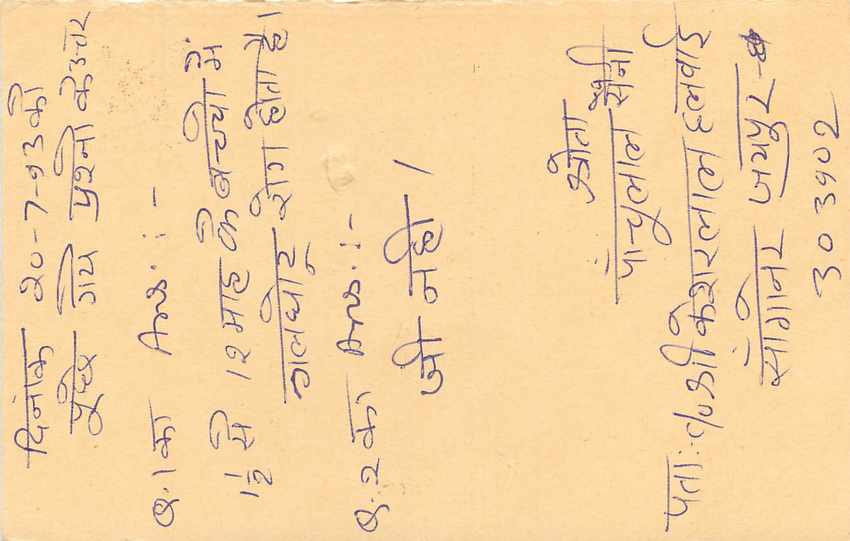 दिनांक 20-7-93 को
पूछे गये प्रश्नो के उत्तर
Q.1 का Ans. :-
1½ से 12 माह के बच्चो में
गलघोटू रोग होता है।
Q.2 का Ans. :-
जी नही ।
श्रोता
पाँचूलाल सैनी
पता:- c/o श्री केशरलाल हलवाई
सांगानेर जयपुर -
303902